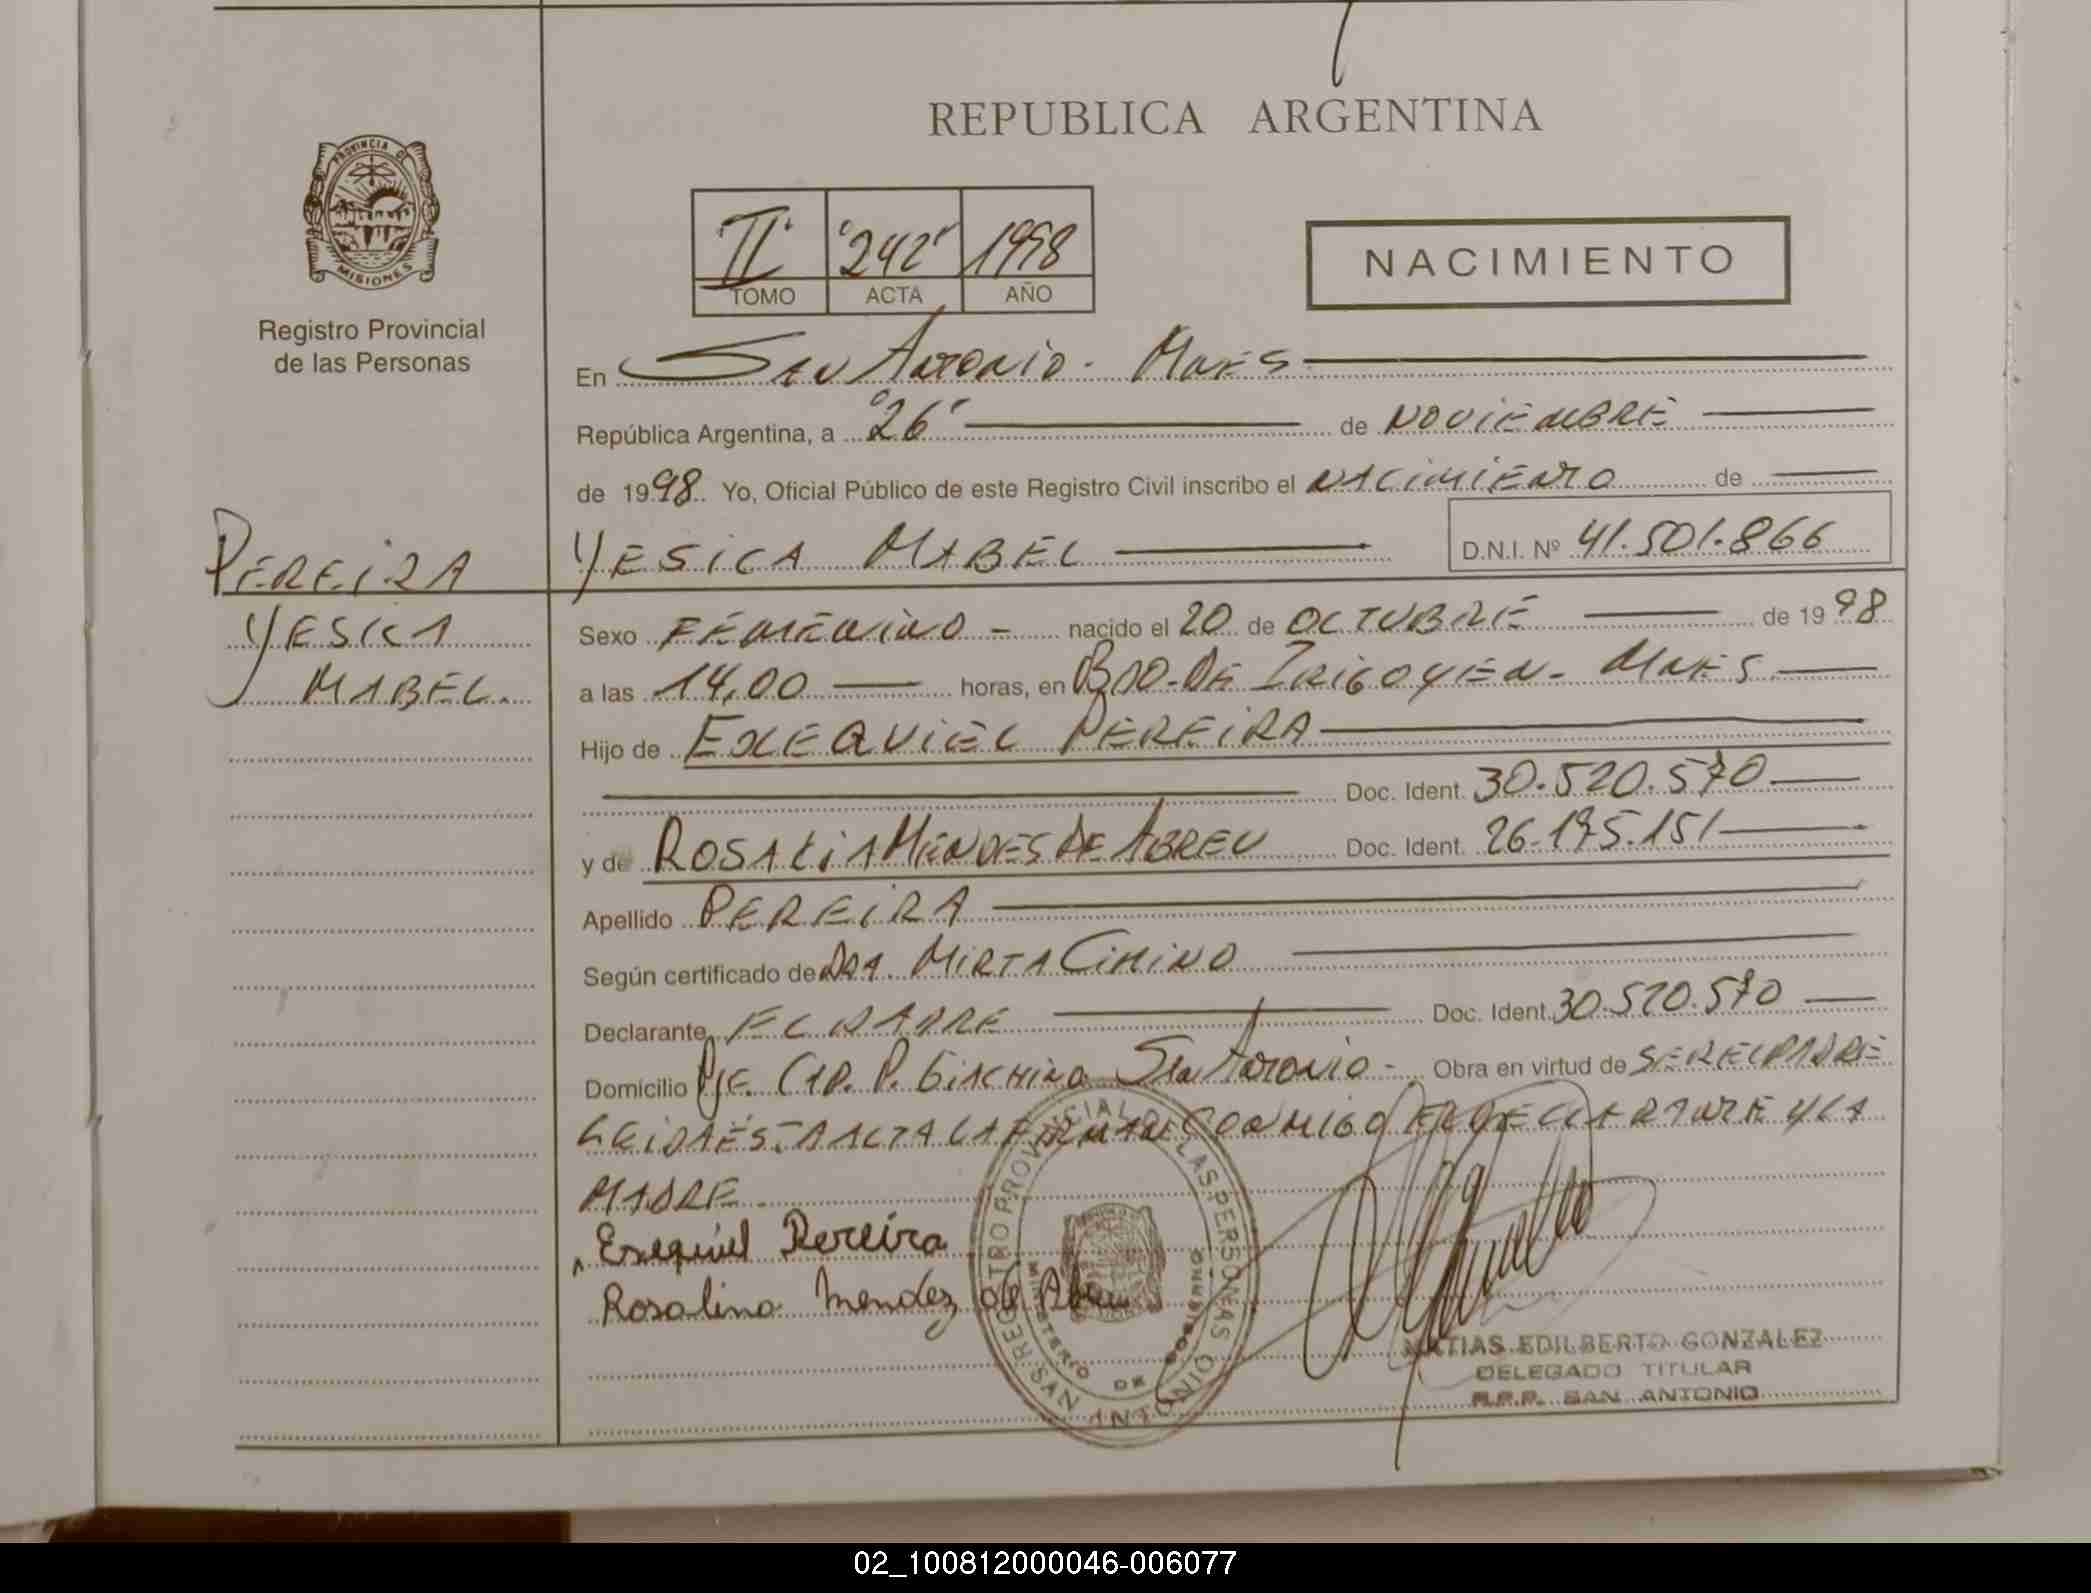 REPUBLICA ARGENTINA
PROVINCIA DE
MISIONES
Registro Provincial
de las Personas
II "242" 1998
TOMO ACTA AÑO
NACIMIENTO
En San Antonio - Mnes
República Argentina, a "26" de NOVIEMBRE
de 1998 Yo, Oficial Público de este Registro Civil inscribo el NACIMIENTO de
YESICA MABEL D.N.I. Nº 41.501.866
PEREIRA
YESICA
MABEL.
Sexo FEMENINO - nacido el 20 de OCTUBRE de 1998
a las 14,00 horas, en BDO. DE IRIGOYEN - MNES
Hijo de EXEQUIEL PEREIRA
Doc. Ident. 30.520.570
y de ROSALIA MENDES DE ABREU Doc. Ident. 26.195.151
Apellido PEREIRA
Según certificado de DRA. MIRTA CIMINO
Declarante EL PADRE Doc. Ident. 30.520.570
Domicilio Pje. CAP. P. Giachino San Antonio - Obra en virtud de SER EL PADRE
LEIDA ESTA ACTA LA FIRMAN CONMIGO EL DECLARANTE Y LA
MADRE.
Exequiel Pereira
Rosalina Mendez de Abreu
REGISTRO PROVINCIAL DE LAS PERSONAS
MINISTERIO DE GOBIERNO
SAN ANTONIO
MATIAS EDILBERTO GONZALEZ
DELEGADO TITULAR
R.P.P. SAN ANTONIO
02_100812000046-006077